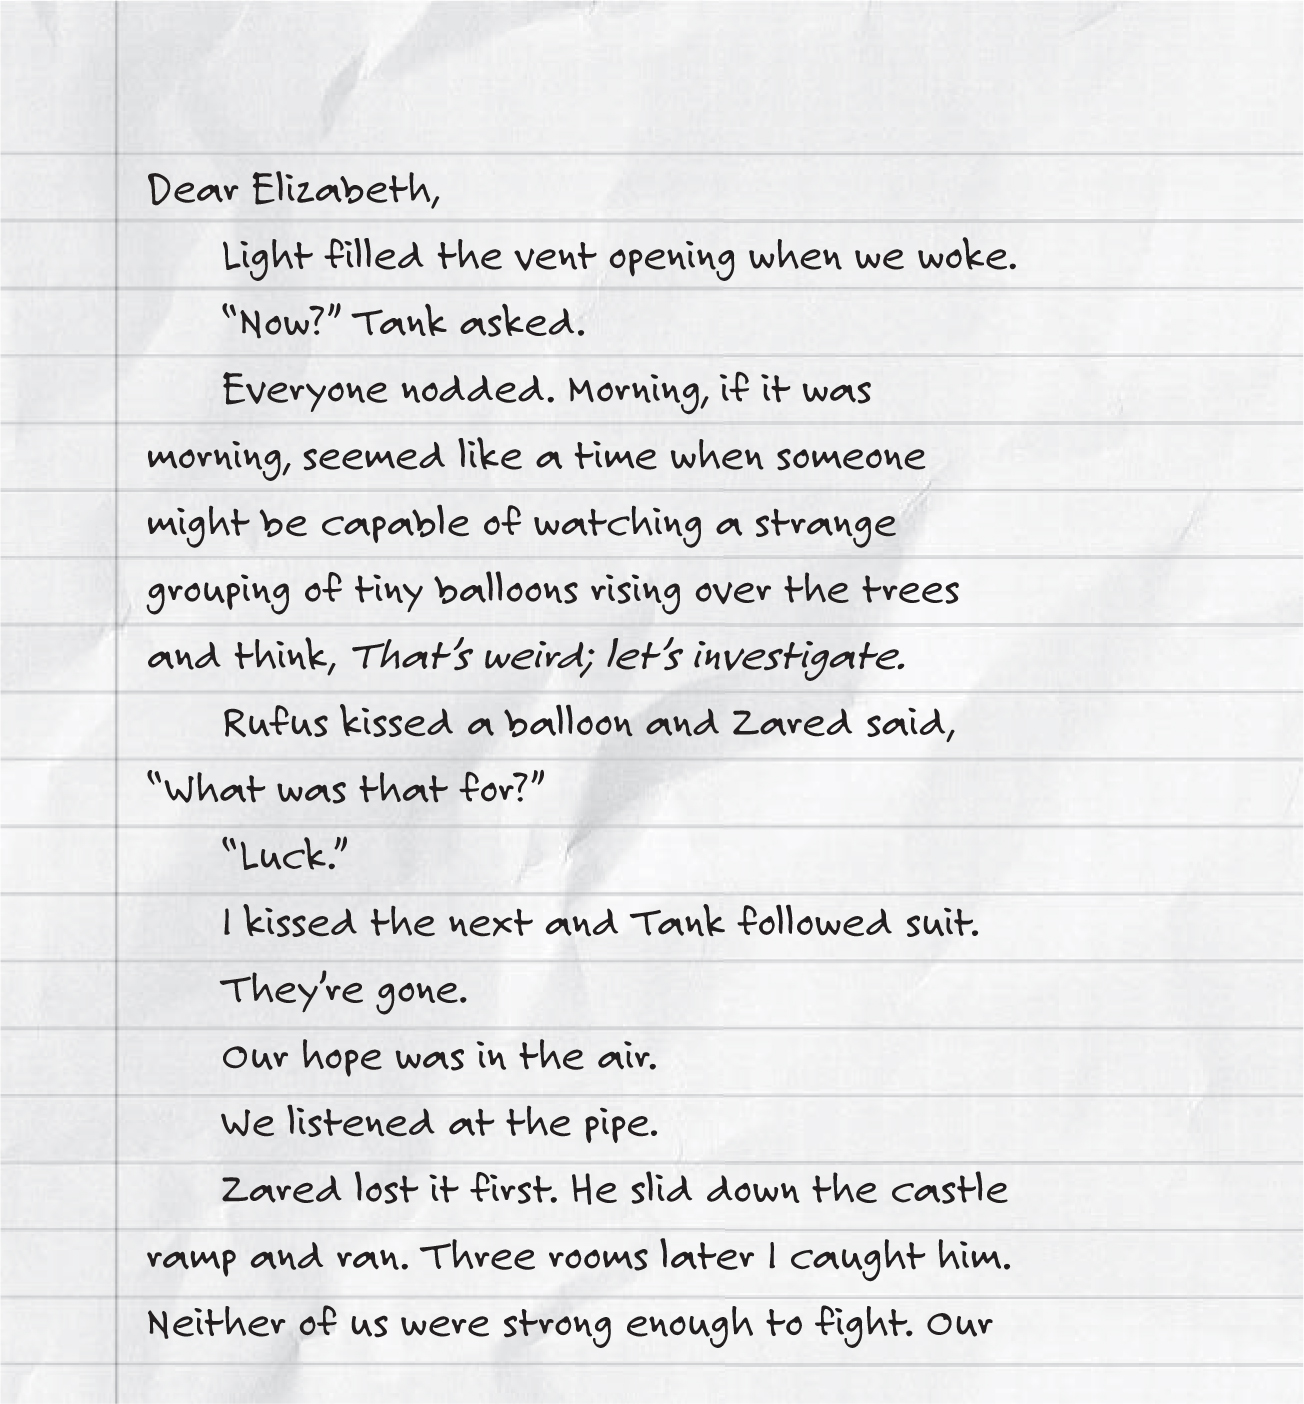 Dear Elizabeth,
Light filled the vent opening when we woke.
“Now?” Tank asked.
Everyone nodded. Morning, if it was
morning, seemed like a time when someone
might be capable of watching a strange
grouping of tiny balloons rising over the trees
and think, That’s weird; let’s investigate.
Rufus kissed a balloon and Zared said,
“What was that for?”
“Luck.”
I kissed the next and Tank followed suit.
They’re gone.
Our hope was in the air.
We listened at the pipe.
Zared lost it first. He slid down the castle
ramp and ran. Three rooms later I caught him.
Neither of us were strong enough to fight. Our